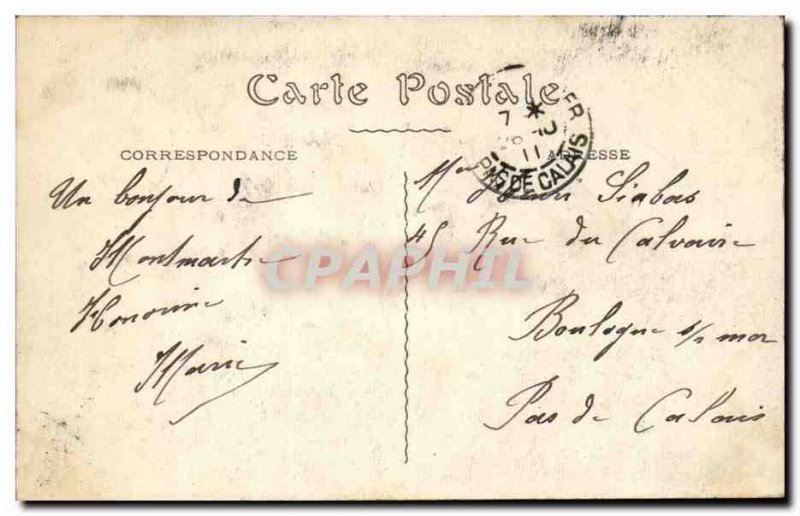 Carte Postale
CORRESPONDANCE
ADRESSE
Un bonjour de
Montmartre
Honorine
Marie
Mr Henri Siabas
45 Rue du Calvaire
Boulogne s/ mer
Pas de Calais
PAS DE CALAIS
CPAPHIL